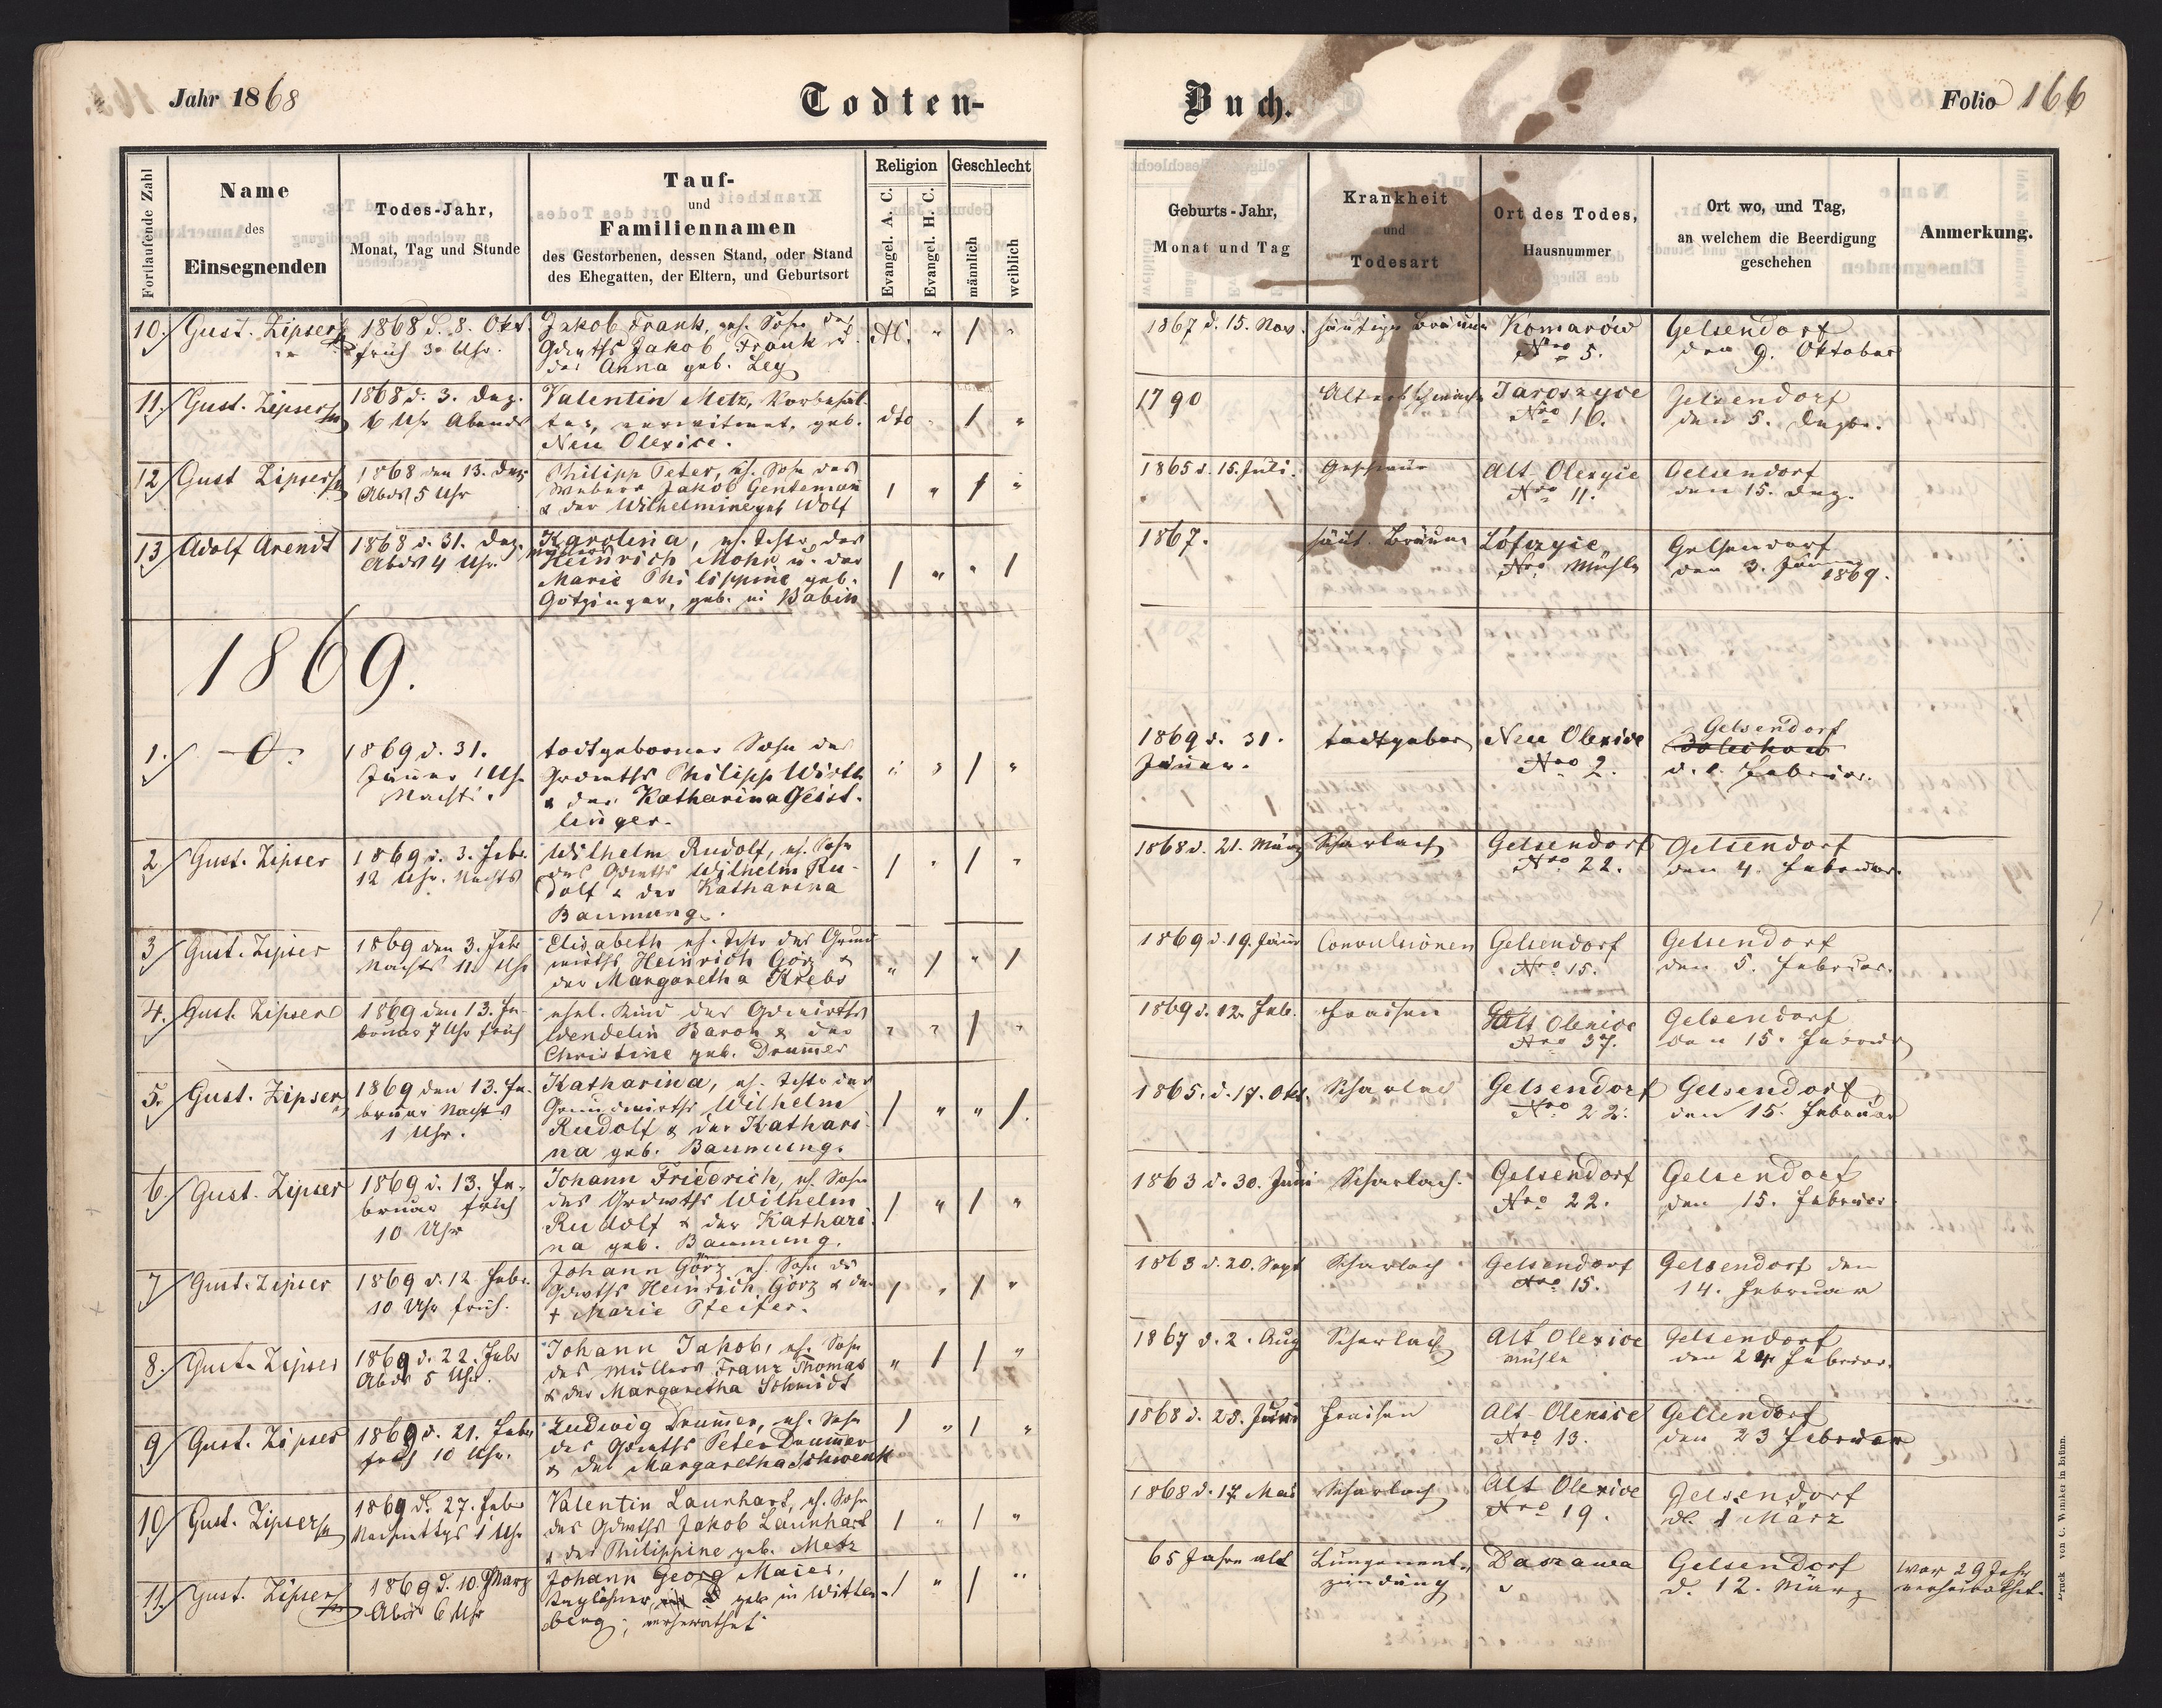 Jahr 1868
Todten-
Buch.
Folio 166
Fortlaufende Zahl
Name
des
Einsegnenden
Todes-Jahr,
Monat, Tag und Stunde
Tauf-
und
Familiennamen
des Gestorbenen, dessen Stand, oder Stand
des Ehegatten, der Eltern, und Geburtsort
Religion
Evangel. A. C.
Evangel. H. C.
Geschlecht
männlich
weiblich
Geburts-Jahr,
Monat und Tag
Krankheit
und
Todesart
Ort des Todes,
Hausnummer
Ort wo, und Tag,
an welchem die Beerdigung
geschehen
Anmerkung.
10. Gust. Zipser 1868 d. 8. Okt. Jakob Frank, eh. Sohn des 1867 d. 15. Nov. häutige Bräune Komarów Gelsendorf
früh 3 Uhr. Jakob Frank u. Nro 5. den 9. Oktober
der Anna geb. Ley
11. Gust. Zipser 1868 d. 3. Dez. Valentin Metz, dto 1790 Altersschwäche Jaroszyce Gelsendorf
6 Uhr Abends verwitwet, geb. Nro 16. den 5. Dezbr.
Neu Olexice.
12 Gust Zipser 1868 den 13. Dez Philipp Peter, eh. Sohn des 1865 d. 15. Juli. Alt Olexyce Gelsendorf
Abds 5 Uhr Webers Jakob Gentemañ Nro 11. den 15. Dez.
& der Wilhelmine geb Wolf
13 Adolf Arendt 1868 d. 31. Dez. Karolina, eh. Tochter des 1867. häut. Bräune Gelsendorf
Abds 4 Uhr. Müllers Heinrich Mohr u. der Nro Mühle den 3. Jän 1869.
Marie Philippine geb.
Götzinger, geb. in Babin
1869.
1. -0- 1869 d. 31. todtgeborner Sohn des 1869 d. 31. todtgeboren Neu Olexice Gelsendorf
Jänner 1 Uhr Grdwths Philipp Wirth Jänner. Nro 2. d. 1. Februar.
Nachts. & der Katharina Geist-
linger.
2. Gust. Zipser 1869 d. 3. Febr. Wilhelm Rudolf, eh. Sohn 1868 d. 21. März Scharlach Gelsendorf Gelsendorf
12 Uhr. Nachts des Grdwths Wilhelm Ru- Nro 22. den 4. Februar.
dolf & der Katharina
Baumung.
3 Gust. Zipser 1869 den 3. Febr Elisabeth eh. Tochter des Grund 1869 d. 19. Jänn Convulsionen Gelsendorf Gelsendorf
Nachts 11 Uhr wirths Heinrich Görz & Nro 15. den 5. Februar.
der Margaretha Krebs
4. Gust. Zipser 1869 den 13. Fe- ehel. Kind des Grdwirths 1869 d. 12. Feb. Fraisen Alt Olexice Gelsendorf
bruar 7 Uhr früh Wendelin Baron & der Nro 37. den 15. Februar
Christine geb. Drum̃er
5. Gust. Zipser 1869 den 13. Fe- Katharina, eh. Tochter des 1865. d. 17. Okt. Scharlach Gelsendorf Gelsendorf
bruar Nachts Grundwirths Wilhelm Nro 22. den 15. Februar
1 Uhr. Rudolf & der Kathari-
na geb. Baumung.
6. Gust. Zipser 1869 d. 13. Fe- Johann Friedrich, eh. Sohn 1863 d. 30. Juni Scharlach. Gelsendorf Gelsendorf
bruar früh des Grdwths Wilhelm Nro 22. den 15. Februar.
10 Uhr Rudolf & der Kathari-
na geb. Baumung.
7 Gust. Zipser 1869 d. 12. Febr. Johann Görz eh. Sohn des 1863 d. 20. Sept Scharlach Gelsendorf Gelsendorf den
10 Uhr früh. Grdwths Heinrich Görz & der Nro 15. 14. Februar
+ Marie Pfeifer.
8. Gust. Zipser 1869 d. 22. Febr Johann Jakob, eh. Sohn 1867 d. 2. Aug Scharlach Alt Olexice Gelsendorf
Abds 5 Uhr. des Müllers Franz Thomas Mühle den 24 Februar.
& der Margaretha Schmidt
9 Gust. Zipser 1869 d. 21. Febr Ludwig Drum̃er, eh. Sohn 1868 d. 25. Juni Fraisen Alt Olexice Gelsendorf
früh 10 Uhr. des Grdwths Peter Drum̃er Nro 13. den 23 Februar
& der Margaretha Schwenk
10 Gust. Zipser 1869 d. 27. Febr Valentin Launhart, eh. Sohn 1868 d. 17 Mai Scharlach Alt Olexice Gelsendorf
Nachmittgs 1 Uhr des Grdwths Jakob Launhart Nro 19. d. 1 März
& der Philippine geb. Metz
11. Gust. Zipser 1869 d. 10. März Johann Georg Maier, 65 Jahre alt Lungenent- Daszawa Gelsendorf war 29 Jahr
Abds 6 Uhr Taglöhner, geb in Witten- zündung d. 12. März verheirathet.
berg; verheirathet
Druck von C. Winiker in Brünn.